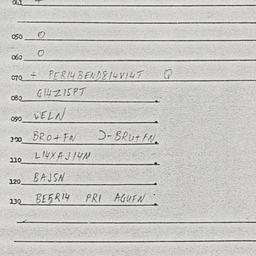 041 +
050 O
060 O
070 + PER14BEND814V14T Q
080 G14Z15PT
090 WELN
390 BRO+FN D-BRU+FN
110 L14XAJ14N
120 BAJSN
130 BE5R14 PRI AGUFN